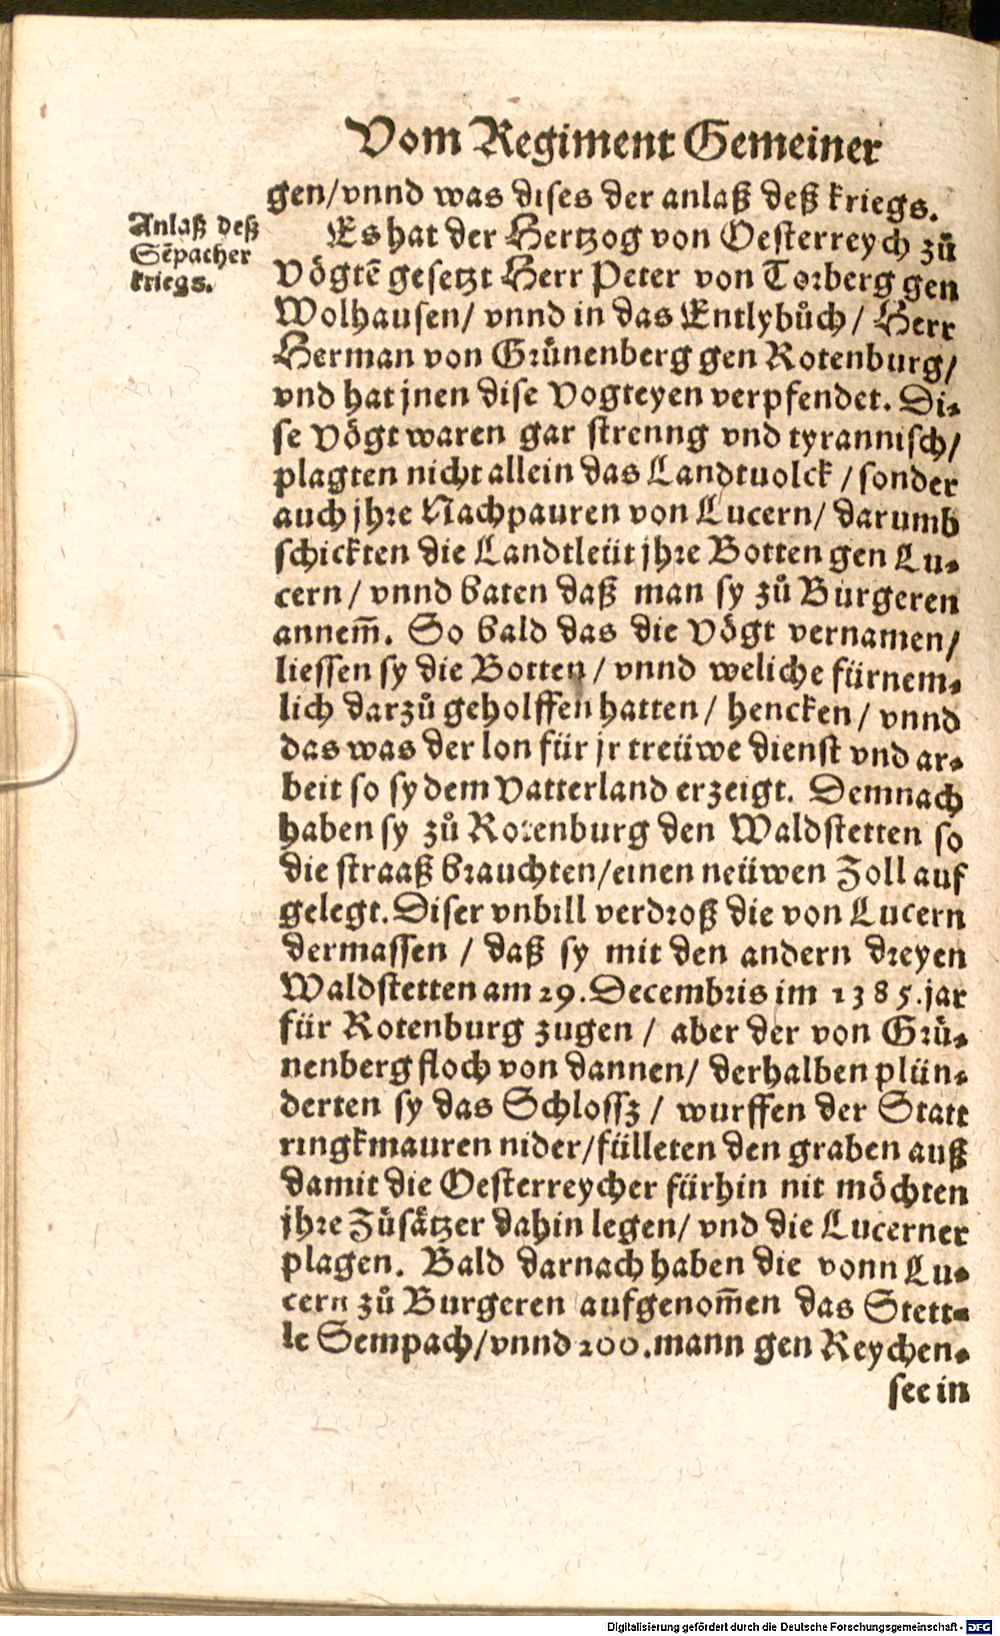 Vom Regiment Gemeiner
gen/vnnd was dises der anlaß deß kriegs.
Anlaß deß
Sẽpacher
kriegs.
Es hat der Hertzog von Oesterreych zů
Vögtẽ gesetzt Herr Peter von Torberg gen
Wolhausen/ vnnd in das Entlybůch/ Herr
Herman von Grünenberg gen Rotenburg/
vnd hat jnen dise Vogteyen verpfendet. Di-
se Vögt waren gar strenng vnd tyrannisch/
plagten nicht allein das Landtuolck/sonder
auch jhre Nachpauren von Lucern/ darumb
schickten die Landtleüt jhre Botten gen Lu-
cern/ vnnd baten daß man sy zů Burgeren
annem̃. So bald das die Vögt vernamen/
liessen sy die Botten/ vnnd weliche fürnem-
lich darzů geholffen hatten/ hencken/ vnnd
das was der lon für jr treüwe dienst vnd ar-
beit so sy dem Vatterland erzeigt. Demnach
haben sy zů Rotenburg den Waldstetten so
die straaß brauchten/einen neüwen Zoll auf
gelegt. Diser vnbill verdroß die von Lucern
dermassen/ daß sy mit den andern dreyen
Waldstetten am 29. Decembris im 1385. jar
für Rotenburg zugen/ aber der von Grü-
nenberg floch von dannen/ derhalben plün-
derten sy das Schlossz/ wurffen der Statt
ringkmauren nider/fülleten den graben auß
damit die Oesterreycher fürhin nit möchten
jhre Zůsätzer dahin legen/ vnd die Lucerner
plagen. Bald darnach haben die vonn Lu-
cern zů Burgeren aufgenom̃en das Stett-
le Sempach/vnnd 200. mann gen Reychen-
see in
Digitalisierung gefördert durch die Deutsche Forschungsgemeinschaft - DFG